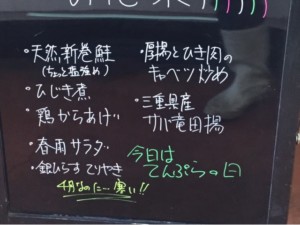 ・天然新巻鮭
(ちょっと塩強め)
・ひじき煮
・鶏からあげ
・春雨サラダ
・銀ひらす てりやき
4月なのに…寒い!!
・厚揚とひき肉の
キャベツ炒め
・三重県産
サバ竜田揚
今日は
てんぷらの日